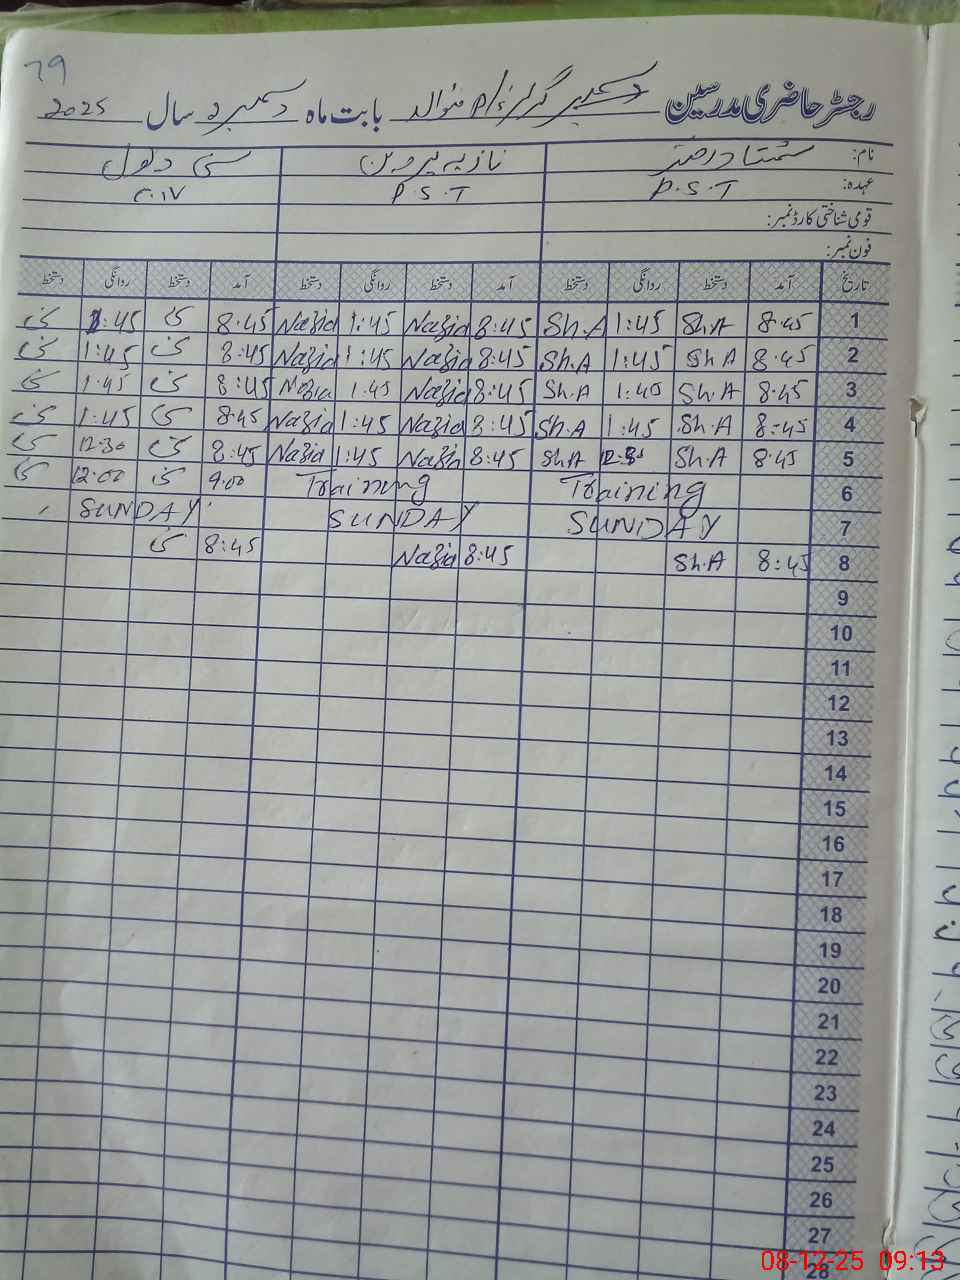 79
رجسٹر حاضری مدرسین گرلز بابت ماہ دسمبر سال 2025
نام: نازیہ پروین
عہدہ: P.S.T P.S.T
قومی شناختی کارڈ نمبر:
فون نمبر:
تاریخ آمد دستخط روانگی دستخط آمد دستخط روانگی دستخط آمد دستخط روانگی دستخط
1 8:45 Sh.A 1:45 Sh.A 8:45 Nazia 1:45 Nazia 8:45 1:45
2 8:45 Sh.A 1:45 Sh.A 8:45 Nazia 1:45 Nazia 8:45 1:45
3 8:45 Sh.A 1:45 Sh.A 8:45 Nazia 1:45 Nazia 8:45 1:45
4 8:45 Sh.A 1:45 Sh.A 8:45 Nazia 1:45 Nazia 8:45 1:45
5 8:45 Sh.A 12:30 Sh.A 8:45 Nazia 1:45 Nazia 8:45 12:30
6 Training Training 9:00 12:00
7 SUNDAY SUNDAY SUNDAY
8 8:45 Sh.A 8:45 Nazia 8:45
9
10
11
12
13
14
15
16
17
18
19
20
21
22
23
24
25
26
27
28
08-12-25 09:13